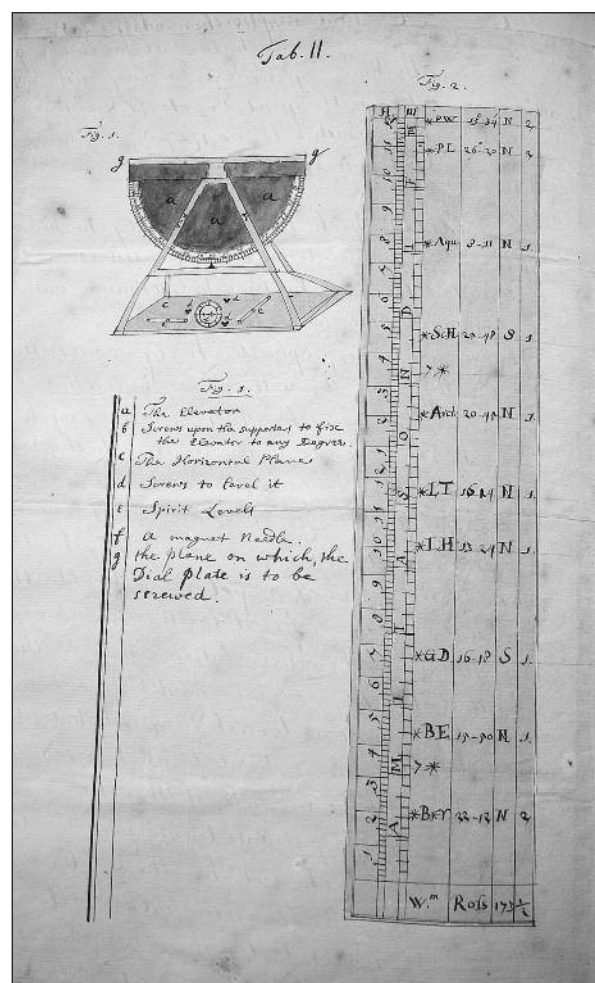 Tab. II.
Fig. 1.
g
g
a
a
a
c
e
Fig. 3.
a The Elevator
b Screws upon the supporters to fixe
the Elevator to any Degree.
c The Horizontal Plane
d Screws to level it
e Spirit Levels
f a magnet Needle.
g the plane on which, the
Dial plate is to be
screwed.
Fig. 2.
H M
12
11 *PL 26-20 N 2
10
9
8 *Aqu 8-11 N 1
7
6
5 *ScH S 1
4 7*
3
2 N 1
1
12 *LT N 1
11
10 *LH 13 29 N 1
9
8
7 *GD 16-18 S 1.
6
5 *BE N 1.
4
3 7*
2 *B*♈ 22-13 N 2
1
W.m Ross 173½